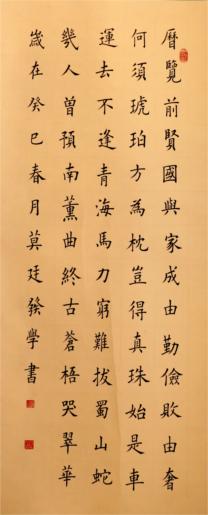 曆覽前賢國與家成由勤儉敗由奢
何須琥珀方為枕豈得真珠始是車
運去不逢青海馬力窮難拔蜀山蛇
幾人曾預南薰曲終古蒼梧哭翠華
歲在癸巳春月莫廷發學書